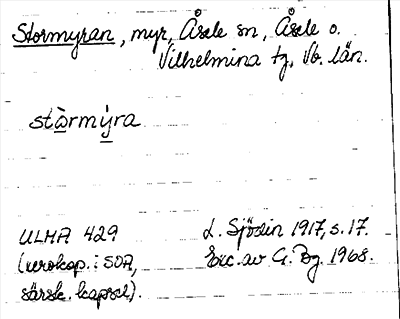 Stormyran, myr, Åsele sn, Åsele o.
Vilhelmina tg, Vb. län.
stòrmýra
ULMA 429
(xerokop. i SOA,
särsk. kapsel).
L. Sjödin 1917, s. 17.
Exc. av G. Bg. 1968.